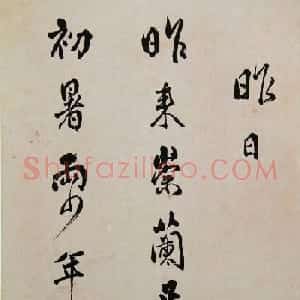 昨日
昨来蘭
初暑年
Shufaziliao.com